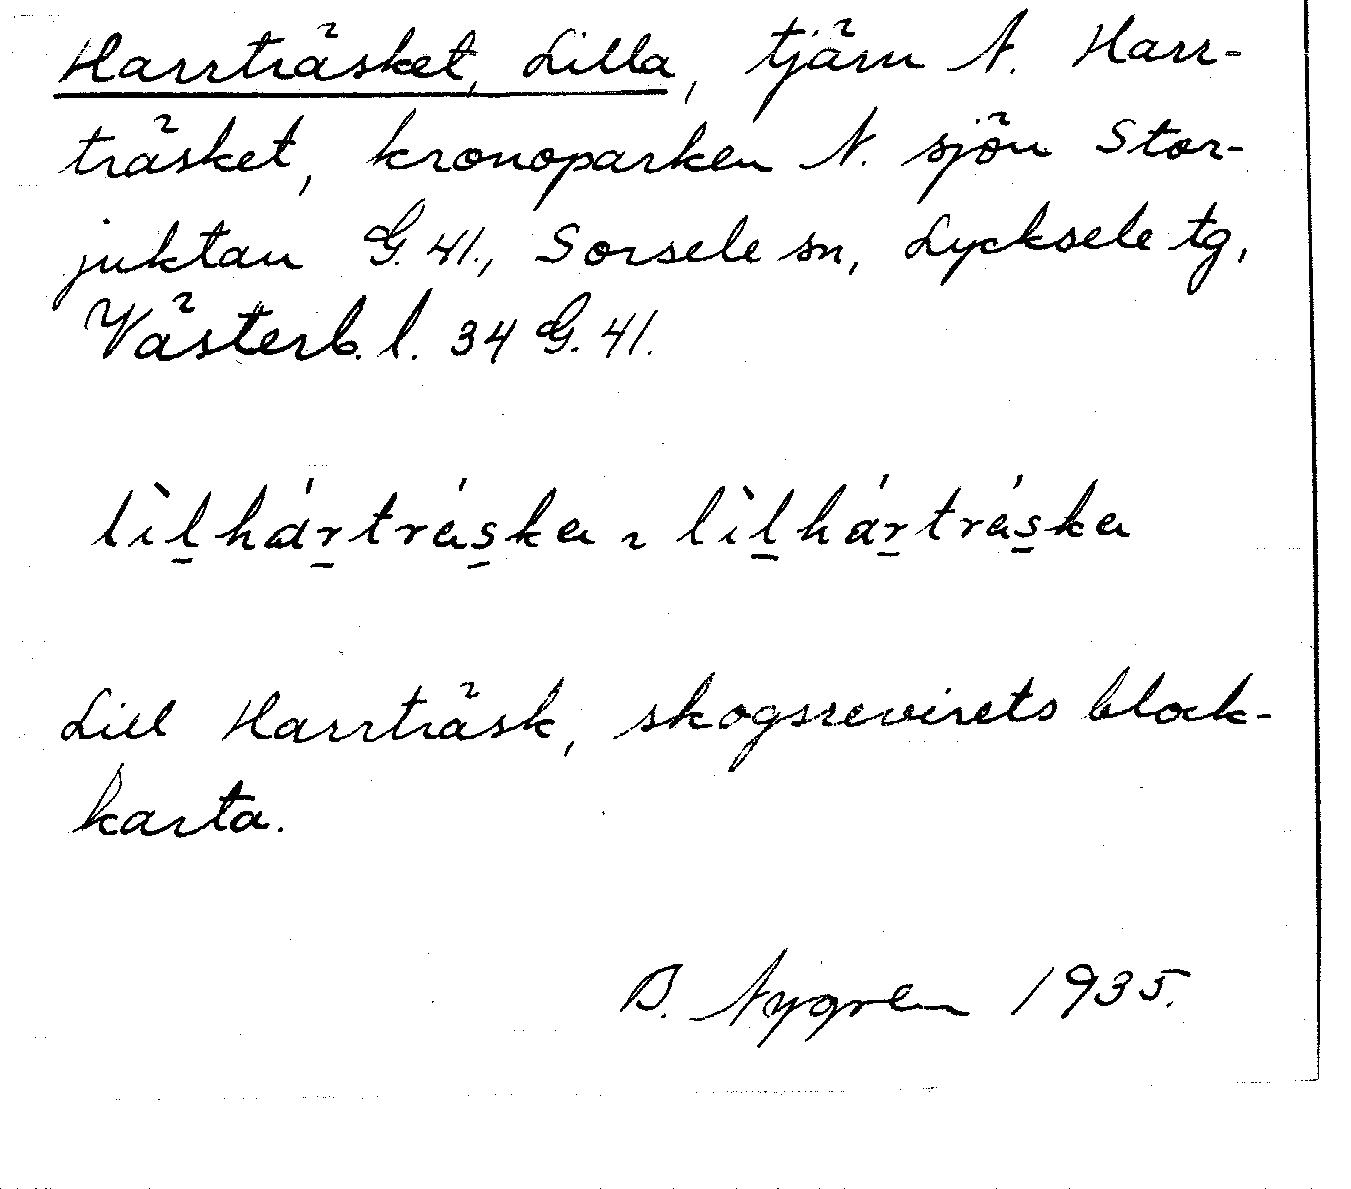 Harrträsket, Lilla, tjärn N. Harr-
träsket, kronoparken N. sjön Stor-
juktan G. 41., Sorsele sn, Lycksele tg,
Västerb. l. 34 G. 41.
lìl̲hár̲trás̲ka ~ lìl̲hár̲trás̲ka
Lill Harrträsk, skogsrevirets block-
karta.
B. Nygren 1935.